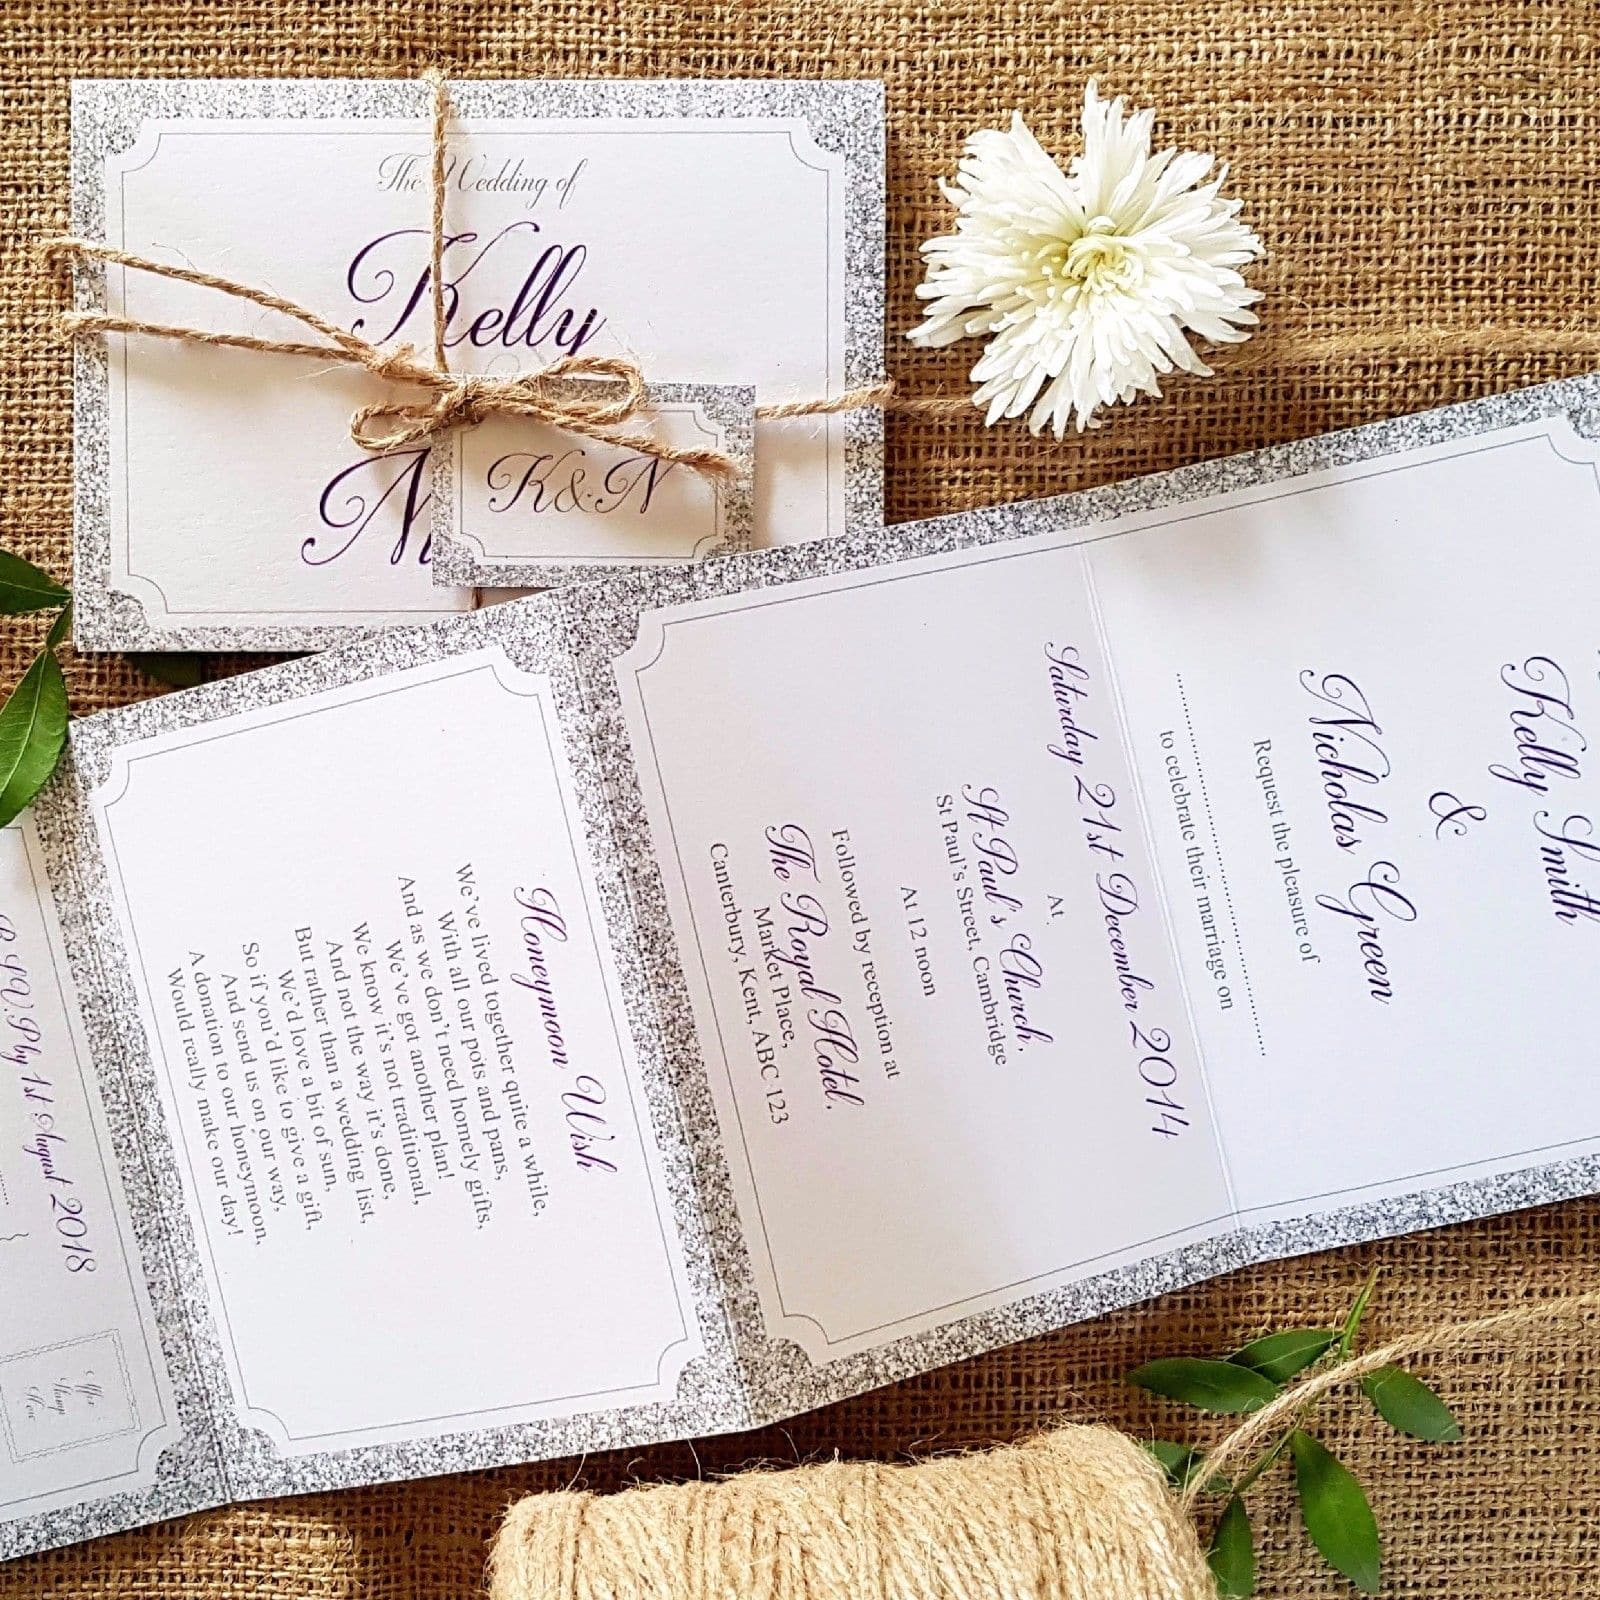 The Wedding of
Kelly
K&N
Kelly Smith
&
Nicholas Green
Request the pleasure of
........................................
to celebrate their marriage on
Saturday 21st December 2014
At.
St Paul's Church,
St Paul's Street, Cambridge
At 12 noon
Followed by reception at
The Royal Hotel,
Market Place,
Canterbury, Kent, ABC 123
Honeymoon Wish
We've lived together quite a while,
With all our pots and pans,
And as we don't need homely gifts,
We've got another plan!
We know it's not traditional,
And not the way it's done,
But rather than a wedding list,
We'd love a bit of sun,
So if you'd like to give a gift,
And send us on our way,
A donation to our honeymoon,
Would really make our day!
R.S.V.P by 1st August 2018
Affix
Stamp
Here